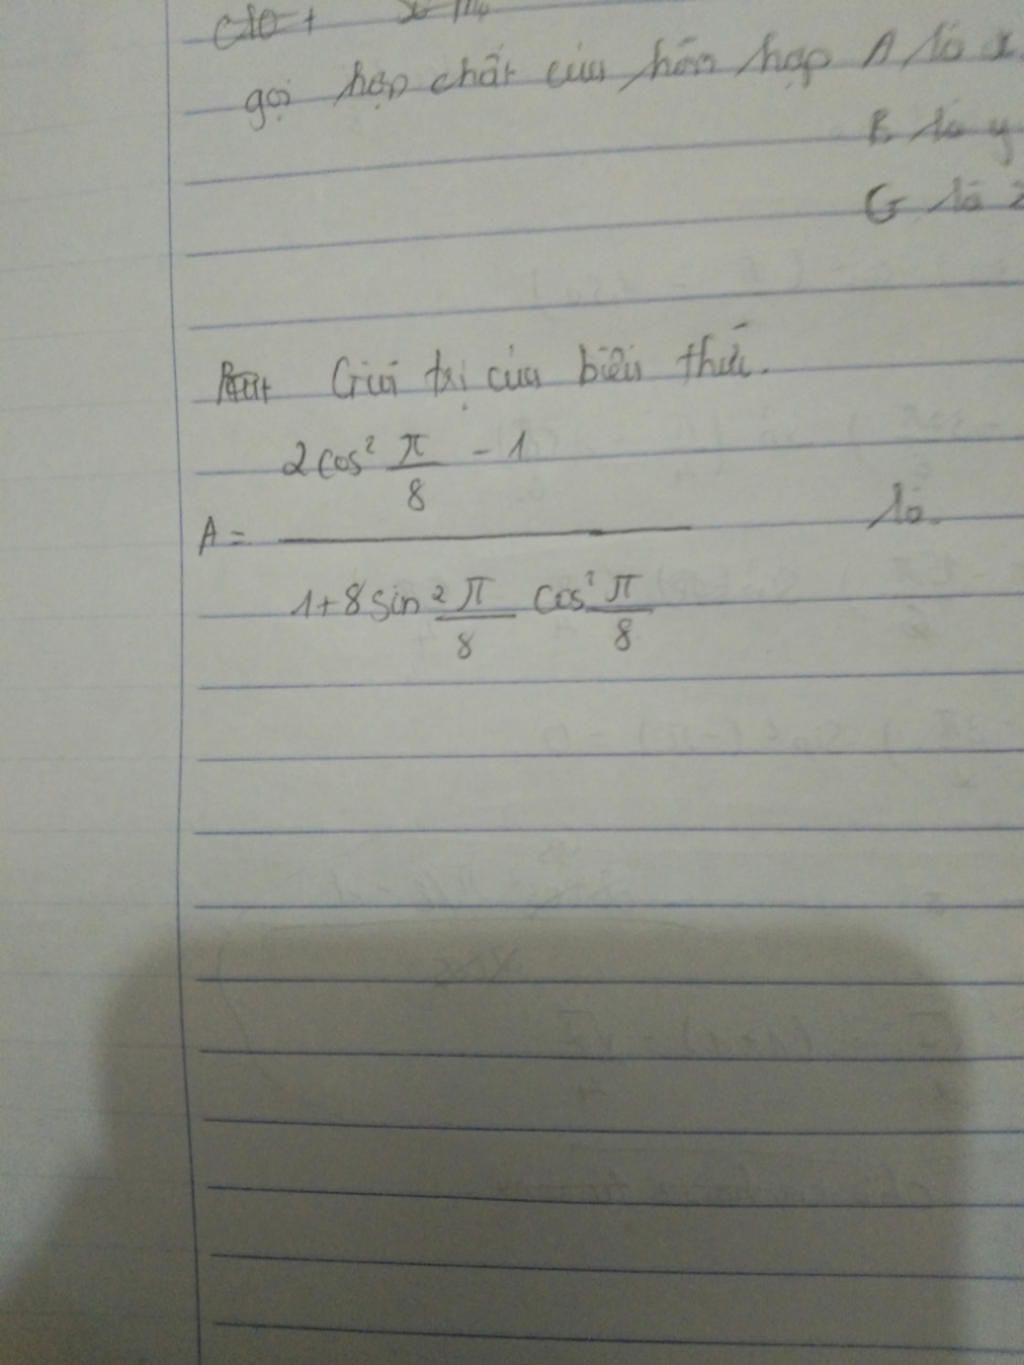 gọi hợp chất của hỗn hợp A là x
B là y
G là z
Giá trị của biểu thức.
2cos² π/8 - 1
A = ―――― là
1+8sin² π/8 cos² π/8